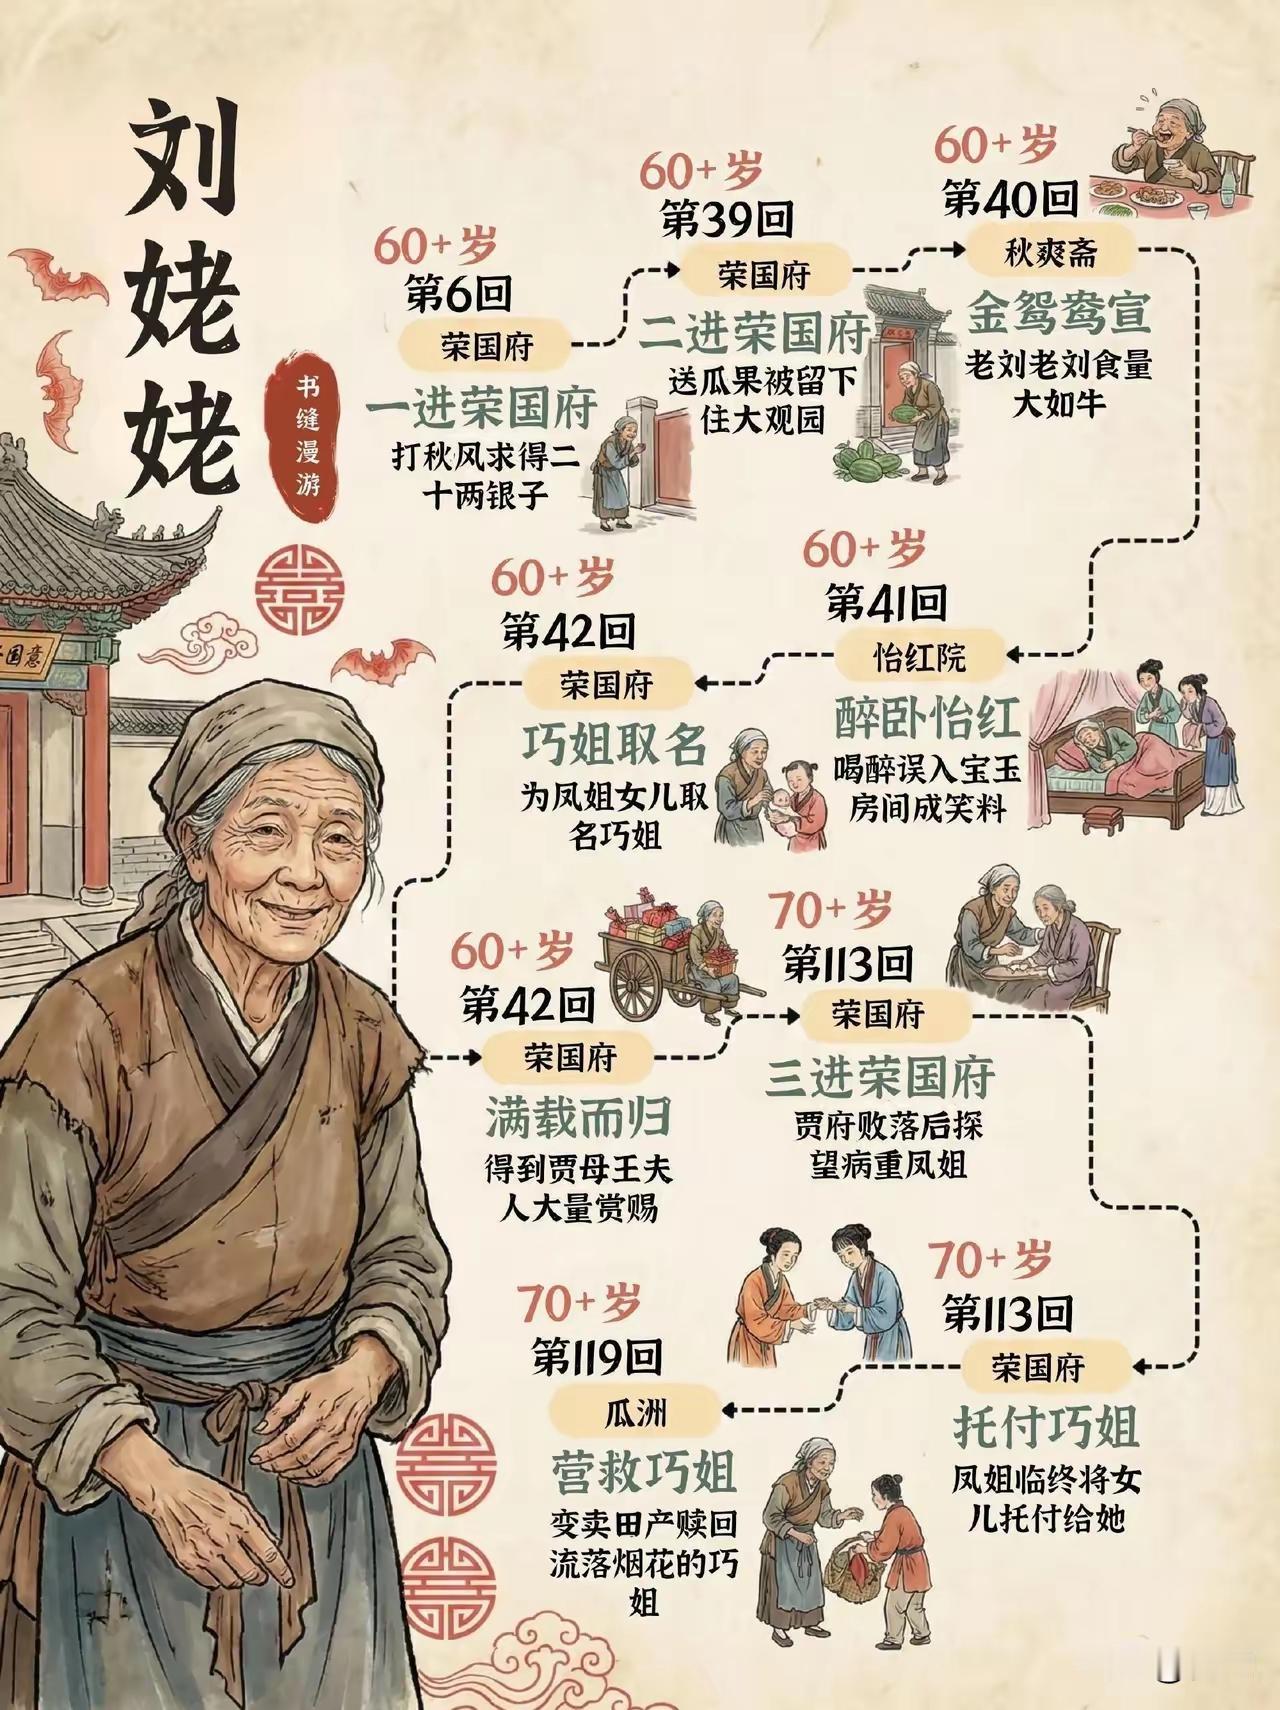 刘姥姥
书缝漫游
60+岁
第6回
荣国府
一进荣国府
打秋风求得二
十两银子
60+岁
第39回
荣国府
二进荣国府
送瓜果被留下
住大观园
60+岁
第40回
秋爽斋
金鸳鸯宣
老刘老刘食量
大如牛
60+岁
第41回
怡红院
醉卧怡红
喝醉误入宝玉
房间成笑料
60+岁
第42回
荣国府
巧姐取名
为凤姐女儿取
名巧姐
60+岁
第42回
荣国府
满载而归
得到贾母王夫
人大量赏赐
70+岁
第113回
荣国府
三进荣国府
贾府败落后探
望病重凤姐
70+岁
第113回
荣国府
托付巧姐
凤姐临终将女
儿托付给她
70+岁
第119回
瓜洲
营救巧姐
变卖田产赎回
流落烟花的巧
姐
国意